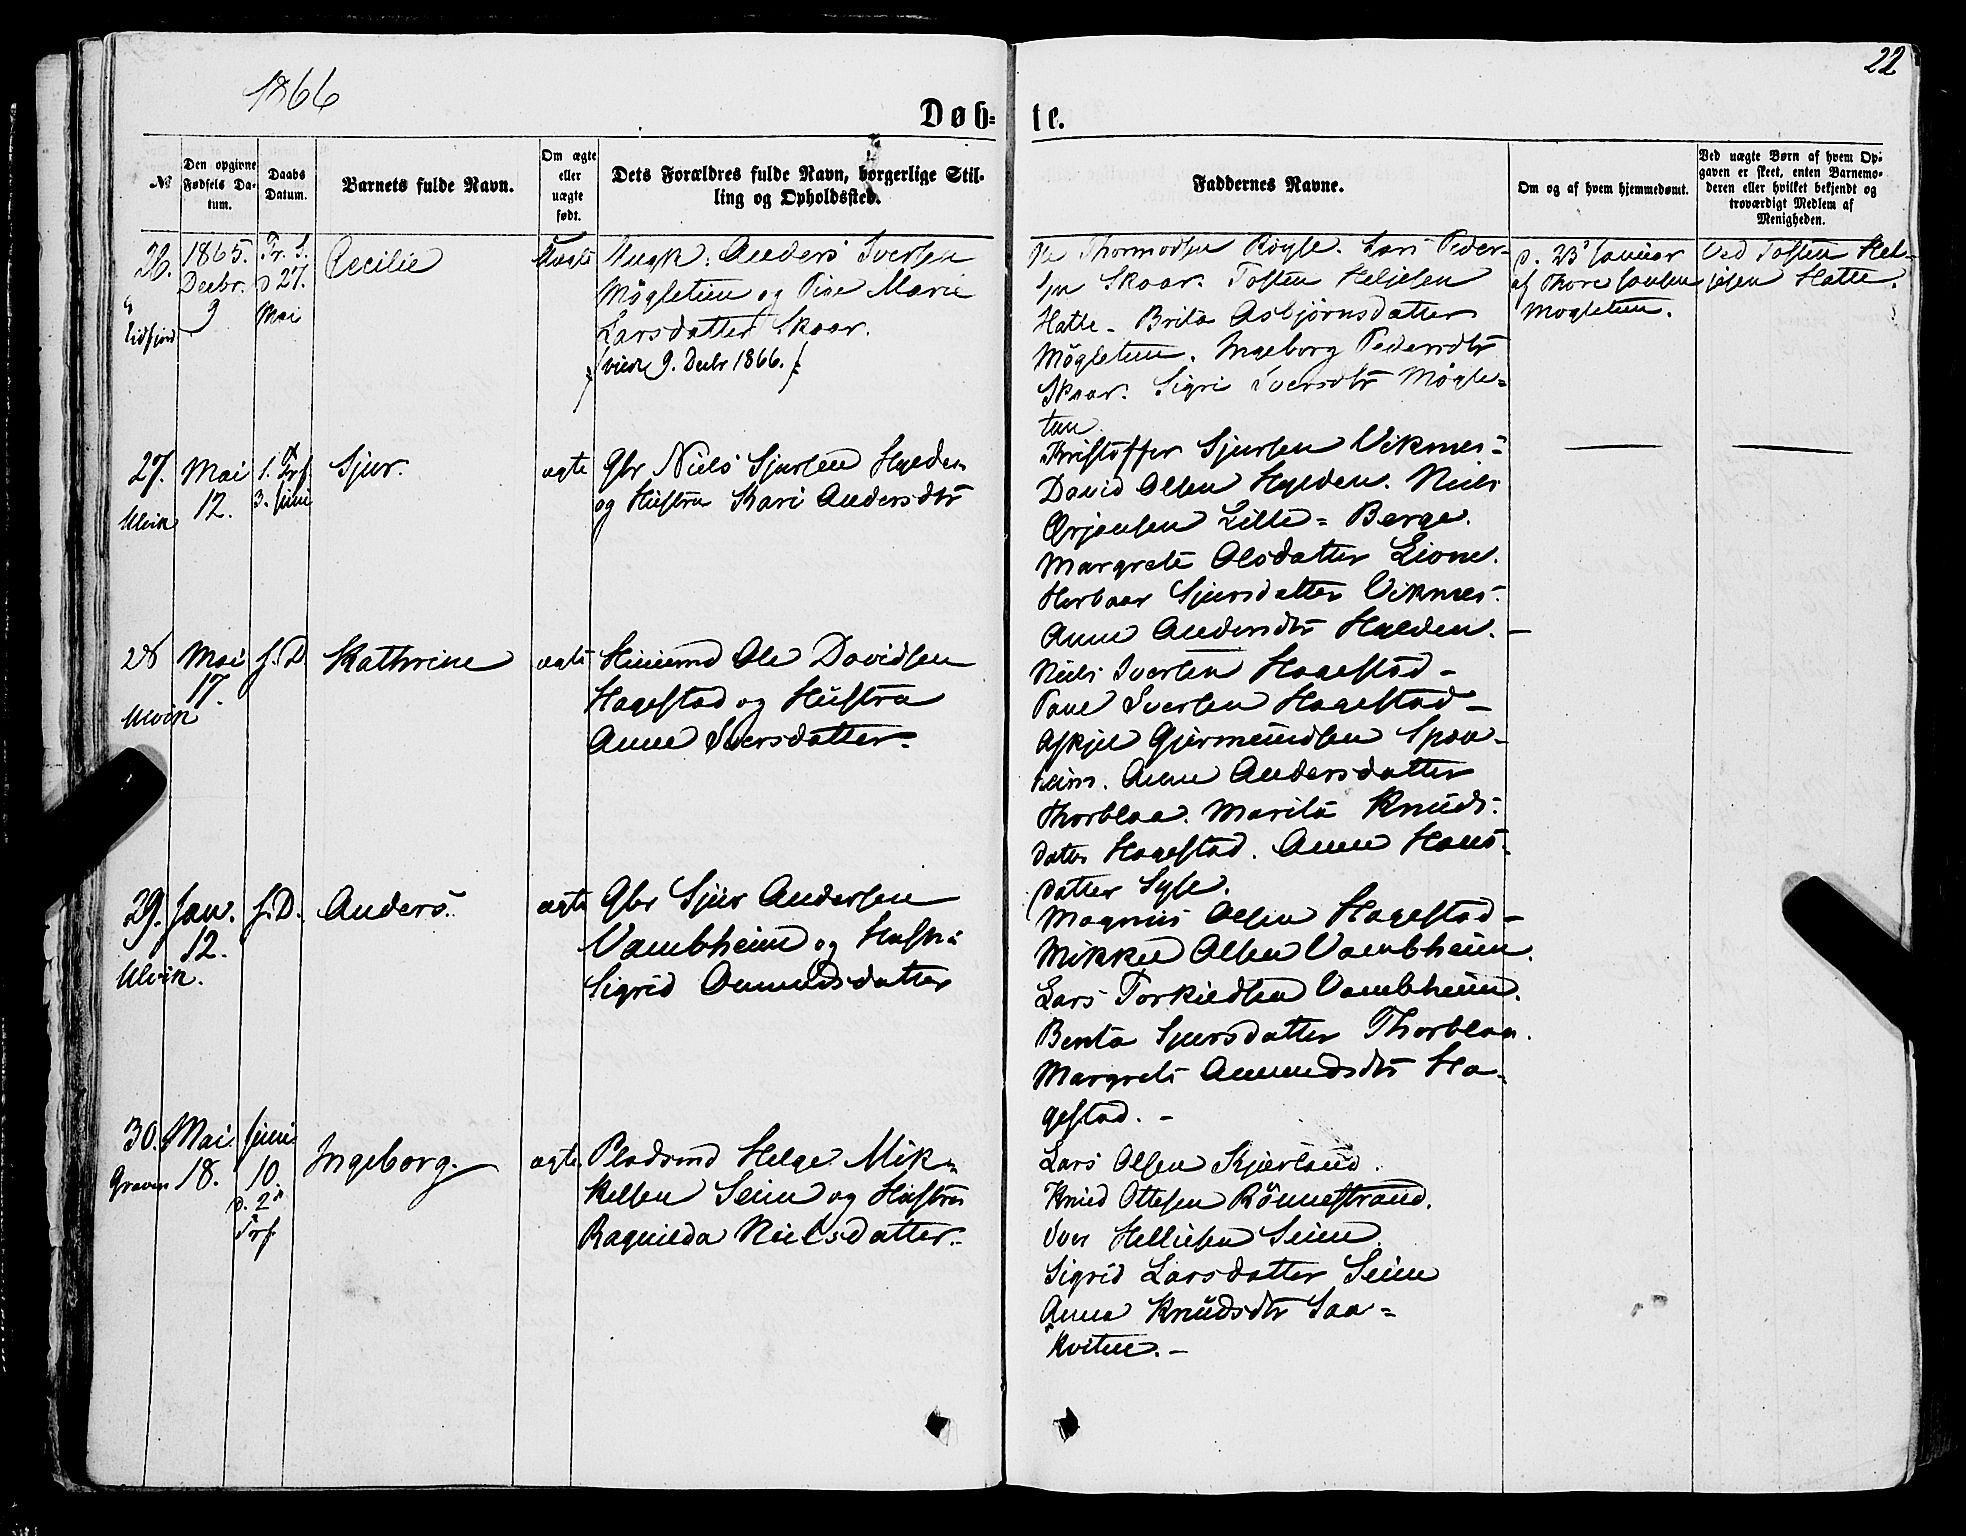 1866
22
Døb=
te.
№
Den opgivne
Fødsels Da-
tum.
Daabs
Datum.
Barnets fulde Navn.
Om ægte
eller
uægte
født.
Dets Forældres fulde Navn, borgerlige Stil-
ling og Opholdssted.
Faddernes Navne.
Om og af hvem hjemmedømt.
Ved uægte Børn af hvem Op-
gaven er skeet, enten Barnemo-
deren eller hvilket bekjendt og
troværdigt Medlem af
Menigheden.
26.
Eidfjord
1865.
Decbr.
9
Tr. S.
d 27.
Mai
Cecilie
Uægte
Ungk: Anders Iversen
Mögletun og Pige Marie
Larsdatter Skaar.
(viede 9. Decbr 1866.)
Thormodsen Röyse. Lars Peder-
sen Skaar. Tosten Heljesen
Hatle - Brita Asbjørnsdatter
Mögletun. Ingeborg Pedersdtr
Skaar. Sigri Iversdtr Mögle-
tun.
d. 23 Januar
af Thore Jonsen
Mogletun.
Ved Tosten Hel-
jesen Hatle.
27.
Ulvik
Mai
12.
1. Trf.
3. Juni
Sjur.
ægte
Gbr Niels Sjursen Hylden
og Hustru Kari Andersdtr
Kristoffer Sjursen Viknes-
David Olsen Hylden. Niels
Ørjansen Lille-Berge.
Margrete Olsdatter Lione.
Herbaar Sjursdatter Viknes.
Anne Andersdtr Hylden. -
28
Ulvik
Mai
17.
s. D.
Kathrine
ægte
Huusmd Ole Davidsen
Hagestad og Hustru
Anne Iversdatter.
Niels Iversen Hagestad -
Povel Iversen Hagestad -
Askjel Gjermundsen Spon-
heim. Anne Andersdatter
Thorblaa. Marita Knuds-
datter Hagestad. Anne Hans-
datter Syse.
29.
Ulvik.
Jan.
12.
s. D.
Anders.
ægte
Gbr Sjur Andersen
Vambheim og Hustru
Sigrid Amundsdatter
Magnus Olsen Hagestad -
Mikkel Olsen Vambheim.
Lars Torkildsen Vambheim.
Benta Sjursdatter Thorblaa.
Margrete Amundsdtr Ha-
gestad. -
30.
Graven
Mai
18.
Juni
10.
d. 2
Trf.
Ingeborg.
ægte.
Pladsmd Helge Mik-
kelsen Seim og Hustru
Ragnilda Nielsdatter.
Lars Olsen Skjerland.
Knud Ottesen Rönnestrand.
Iver Helliesen Seim.
Sigrid Larsdatter Seim
Anna Knudsdtr Saa-
kvitne. -